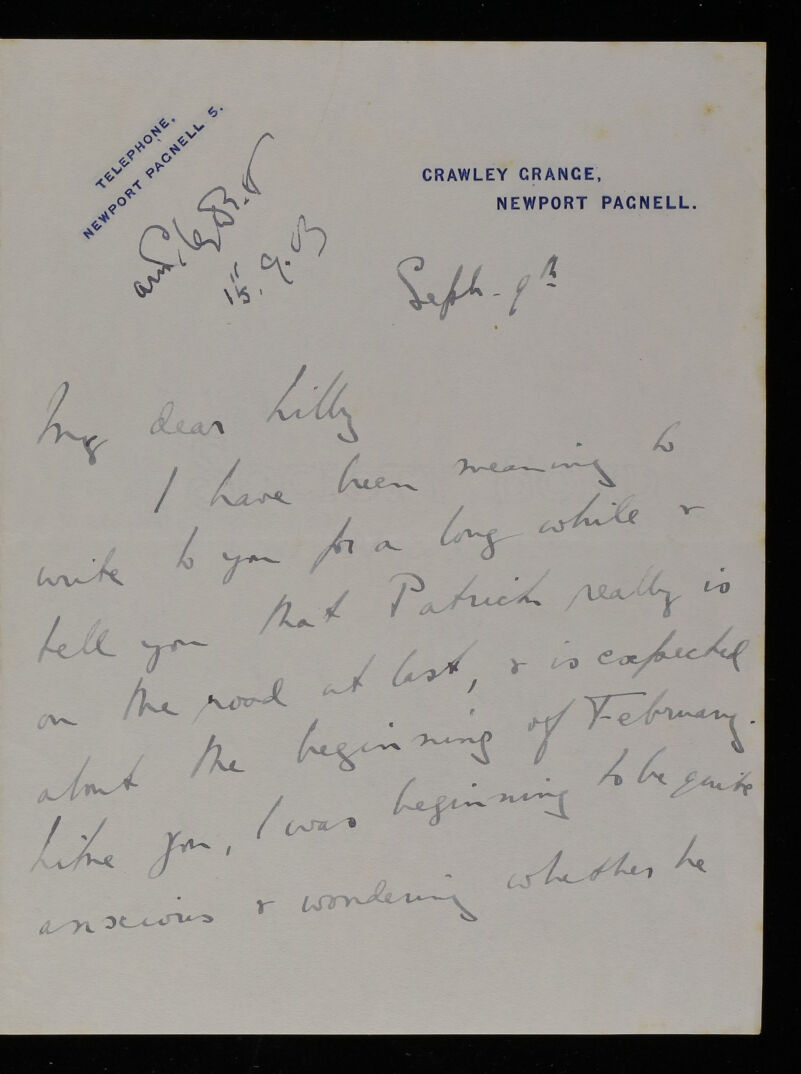 TELEPHONE,
NEWPORT PAGNELL 5.
CRAWLEY GRANGE,
NEWPORT PAGNELL.
15. 9.
Sept. 9th
My dear Lilly
I have been meaning to
write to you for a long while &
tell you that Patrick really is
on the road at last, & is expected
about the beginning of February.
Like you, I was beginning to be quite
anxious & wondering whether he